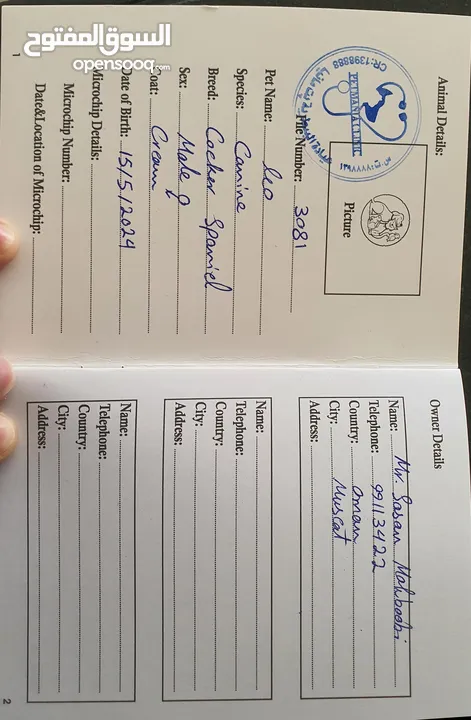 السوق المفتوح
opensooq.com
Animal Details:
CR:1398888
PET MANIA CLINIC
Picture
File Number: 3081
Pet Name: leo
Species: Canine
Breed: Cocker Spaniel
Sex: Male
Coat: Cream
Date of Birth: 15/5/2024
Microchip Details:
Microchip Number:
Date&Location of Microchip:
1
Owner Details
Name: Mr. Sasan Mahboobi
Telephone: 99113422
Country: Oman
City: Muscat
Address:
Name:
Telephone:
Country:
City:
Address:
Name:
Telephone:
Country:
City:
Address:
2